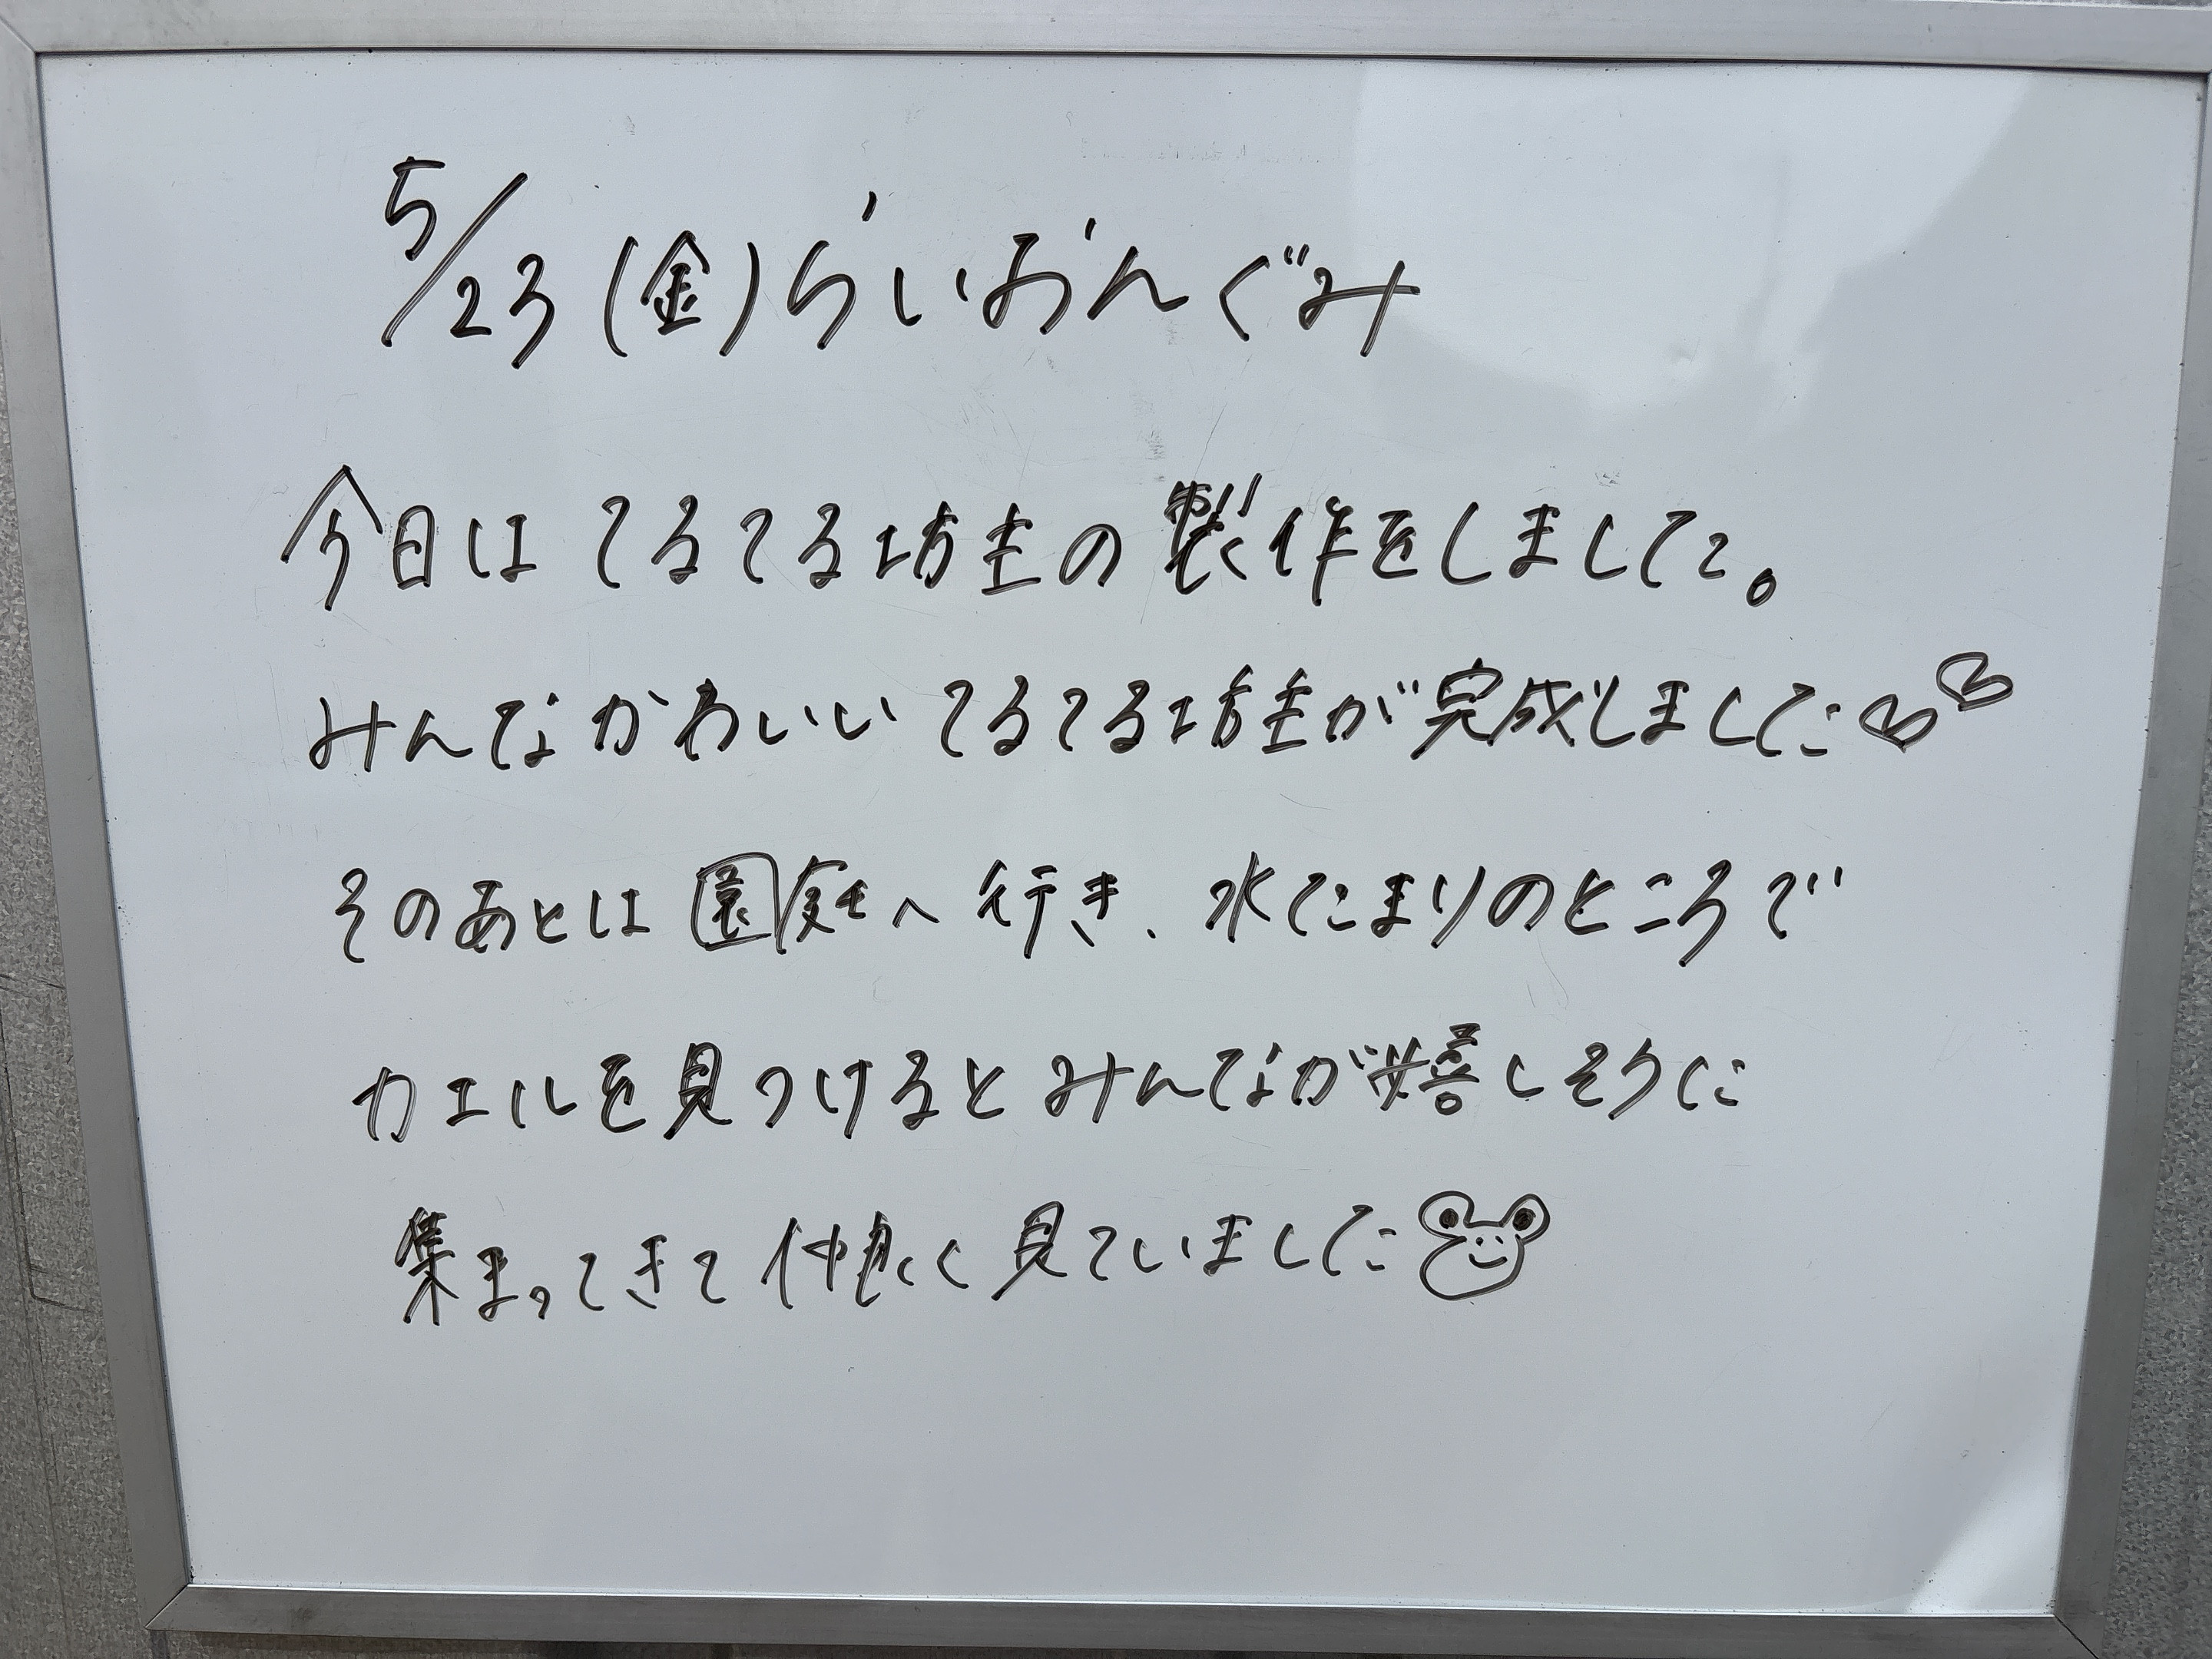 5/23(金)らいおんぐみ
今日はてるてる坊主の製作をしました。
みんなかわいいてるてる坊主が完成しました♡♡
そのあとは園庭へ行き、水たまりのところで
カエルを見つけるとみんなが嬉しそうに
集まってきて仲良く見ていました